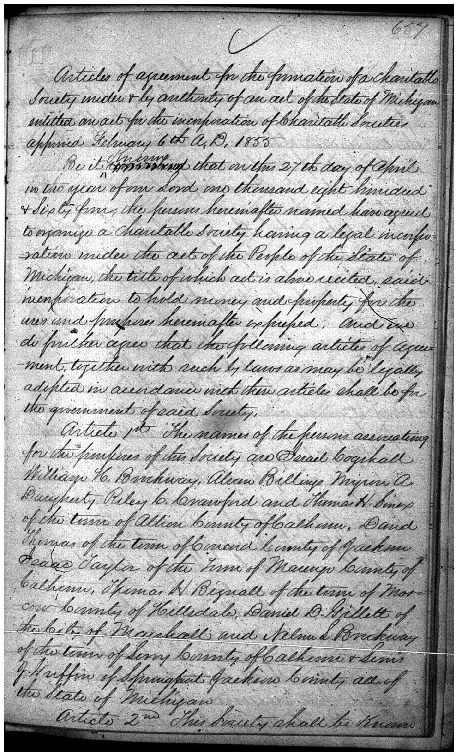 657
Articles of agreement for the formation of a charitable
Society under & by authority of an act of the State of Michigan
entitled an act for the incorporation of Charitable Societies
approved February 6th A,D, 1855
Be it known that on this 27th day of April
in the year of our Lord one thousand eight hundred
& Sixty four, the persons hereinafter named have agreed
to organize a Charitable Society having a legal incorpo-
ration under the act of the People of the State of
Michigan, the title of which act is above recited, said
incorporation to hold money and property for the
uses and purposes hereinafter expressed. And we
do further agree that the following articles of Agree-
ment, together with such by laws as may be legally
adopted in accordance with these articles shall be for
the government of said Society.
Article 1st The names of the persons associating
for the purposes of this Society are Israel Cogshall
William H. Brockway, Alvan Billings Myron A.
Daugherty Riley C. Crawford and Thomas H. Sinex
of the town of Albion County of Calhoun, David
Thomas of the town of Concord County of Jackson
Isaac Taylor of the Town of Marengo County of
Calhoun, Thomas H Bignall of the town of Mos-
cow County of Hillsdale, Daniel D. Gillett of
the City of Marshall and Brockway
of the town of County of Calhoun & Lewis
J. Griffin of Springport Jackson County all of
the State of Michigan
Article 2nd This Society shall be Known